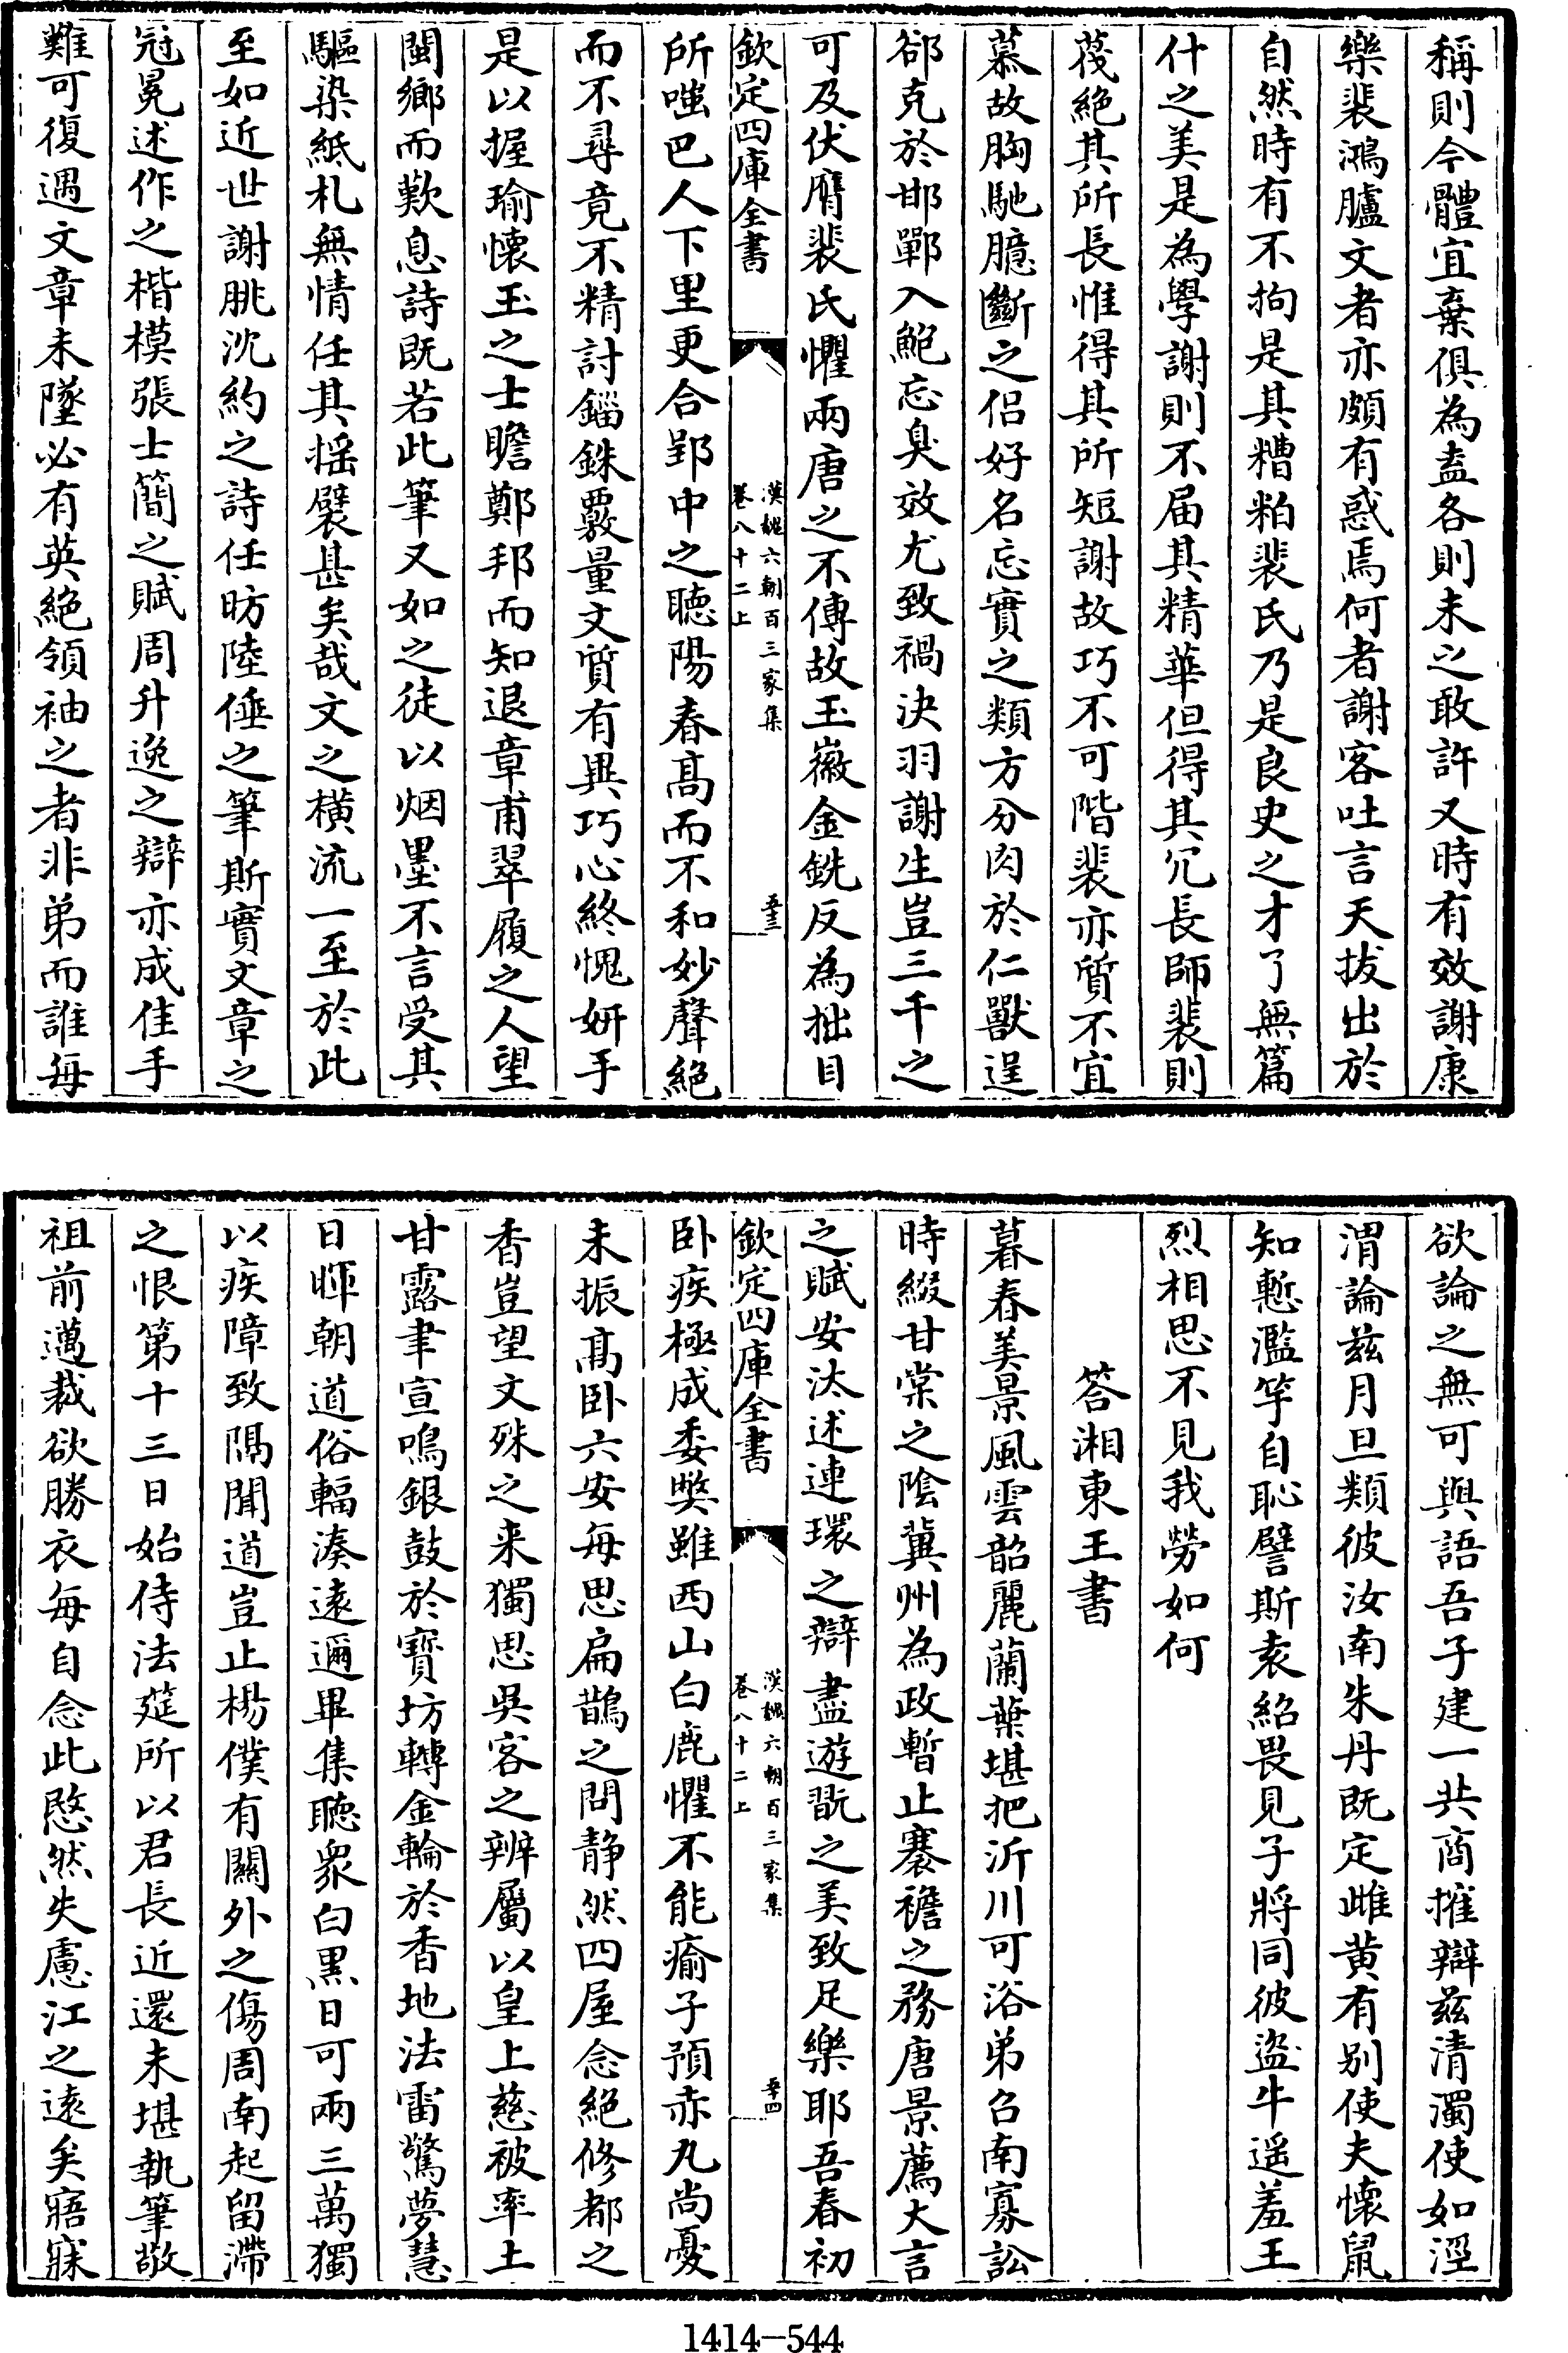 稱則今體宜棄俱為盍各則未之敢許又時有效謝康
樂裴鴻臚文者亦頗有惑焉何者謝客吐言天拔出於
自然時有不拘是其糟粕裴氏乃是良史之才了無篇
什之美是為學謝則不届其精華但得其冗長師裴則
蔑絶其所長惟得其所短謝故巧不可階裴亦質不宜
慕故胸馳臆斷之侣好名忘實之類方分肉於仁獸逞
郤克於邯鄲入鮑忘臭效尤致禍決羽謝生豈三千之
可及伏膺裴氏懼兩唐之不傳故玉徽金銑反為拙目
欽定四庫全書
漢魏六朝百三家集
卷八十二上
五十三
所嗤巴人下里更合郢中之聴陽春髙而不和妙聲絶
而不尋竟不精討錙銖覈量文質有異巧心終愧妍手
是以握瑜懷玉之士瞻鄭邦而知退章甫翠履之人望
閩鄉而歎息詩既若此筆又如之徒以烟墨不言受其
驅染紙札無情任其揺襞甚矣哉文之横流一至於此
至如近世謝朓沈約之詩任昉陸倕之筆斯實文章之
冠冕述作之楷模張士簡之賦周升逸之辯亦成佳手
難可復遇文章未墜必有英絶領袖之者非弟而誰每
欲論之無可與語吾子建一共商搉辯兹清濁使如涇
渭論兹月旦類彼汝南朱丹既定雌黄有别使夫懐鼠
知慙濫竽自恥譬斯袁紹畏見子將同彼盜牛遥羞王
烈相思不見我勞如何
答湘東王書
暮春美景風雲韶麗蘭葉堪把沂川可浴弟召南寡訟
時綴甘棠之陰冀州為政暫止褰襜之務唐景薦大言
之賦安汰述連環之辯盡遊翫之美致足樂耶吾春初
欽定四庫全書
漢魏六朝百三家集
卷八十二上
五十四
卧疾極成委弊雖西山白鹿懼不能瘉子預赤丸尚憂
未振髙卧六安每思扁鵲之問静然四屋念絶修都之
香豈望文殊之来獨思吳客之辨屬以皇上慈被率土
甘露聿宣鳴銀鼓於寳坊轉金輪於香地法雷驚夢慧
日暉朝道俗輻湊逺邇畢集聽衆白黒日可兩三萬獨
以疾障致隔聞道豈止楊僕有關外之傷周南起留滯
之恨第十三日始侍法筵所以君長近還未堪執筆敬
祖前邁裁欲勝衣每自念此愍然失慮江之逺矣寤寐
1414-544